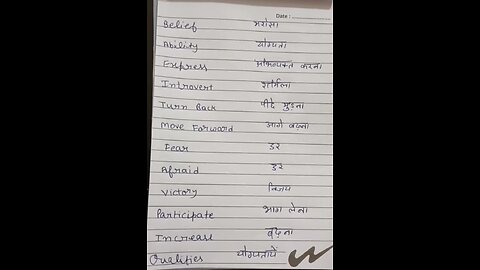 Date :
Belief भरोसा
Ability योग्यता
Express अभिव्यक्त करना
Introvert शर्मिला
Turn Back पीछे मुड़ना
Move Forward आगे बढ़ना
Fear डर
Afraid डर
Victory विजय
Participate भाग लेना
Increase बढ़ना
Qualifies योग्यतायें